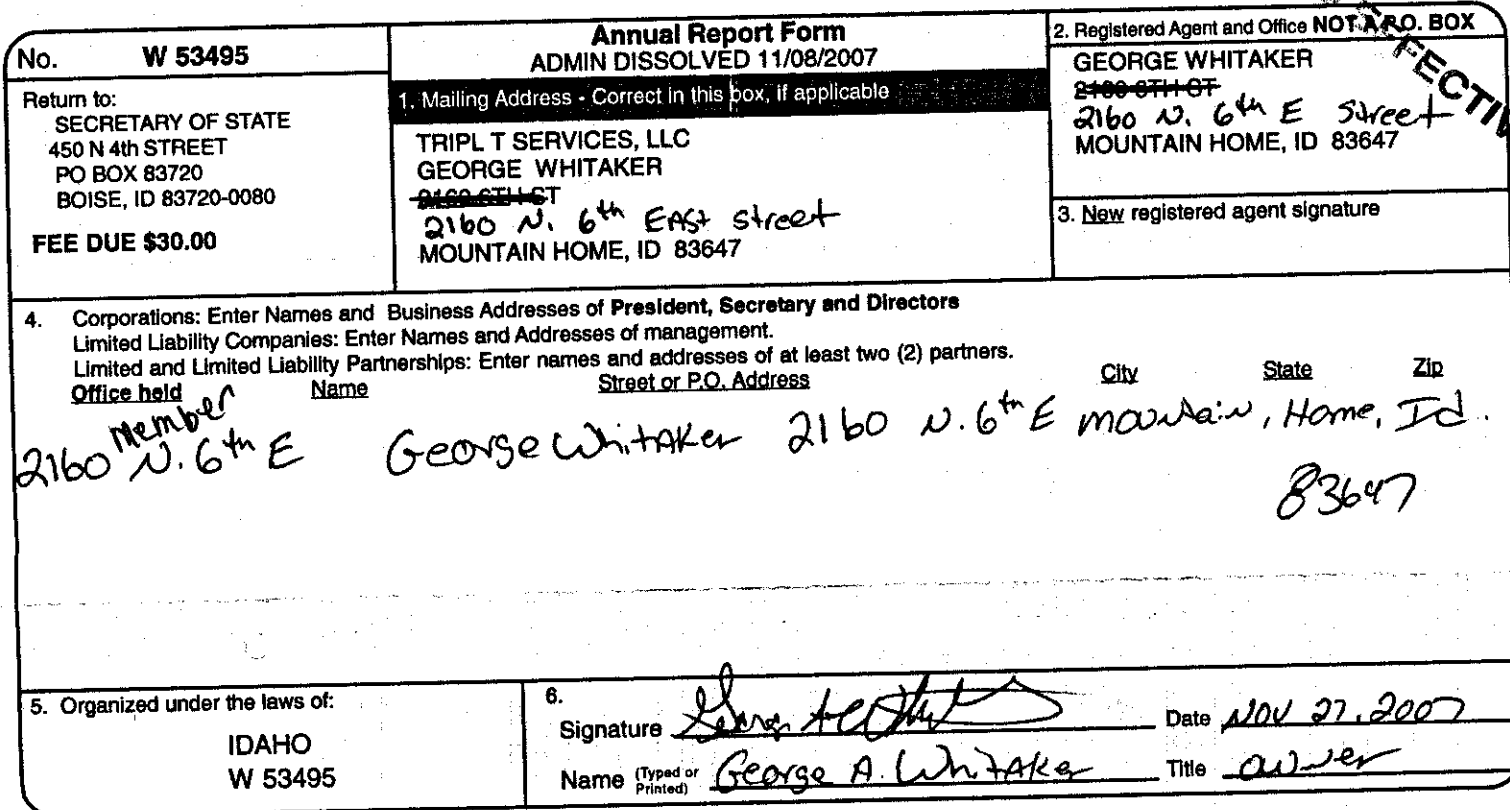 No. W 53495
Return to:
SECRETARY OF STATE
450 N 4th STREET
PO BOX 83720
BOISE, ID 83720-0080
FEE DUE $30.00
Annual Report Form
ADMIN DISSOLVED 11/08/2007
1. Mailing Address - Correct in this box, if applicable
TRIPL T SERVICES, LLC
GEORGE WHITAKER
2160 6TH ST
2160 N. 6th EAST Street
MOUNTAIN HOME, ID 83647
2. Registered Agent and Office NOT A P.O. BOX
GEORGE WHITAKER
2160 6TH ST
2160 N. 6th E Street
MOUNTAIN HOME, ID 83647
3. New registered agent signature
4. Corporations: Enter Names and Business Addresses of President, Secretary and Directors
Limited Liability Companies: Enter Names and Addresses of management.
Limited and Limited Liability Partnerships: Enter names and addresses of at least two (2) partners.
Office held Name Street or P.O. Address City State Zip
Member
2160 N. 6th E George Whitaker 2160 N. 6th E Mountain, Home, Id.
83647
5. Organized under the laws of:
IDAHO
W 53495
6.
Signature Date NOV 27, 2007
Name (Typed or Printed) George A. Whitaker Title owner